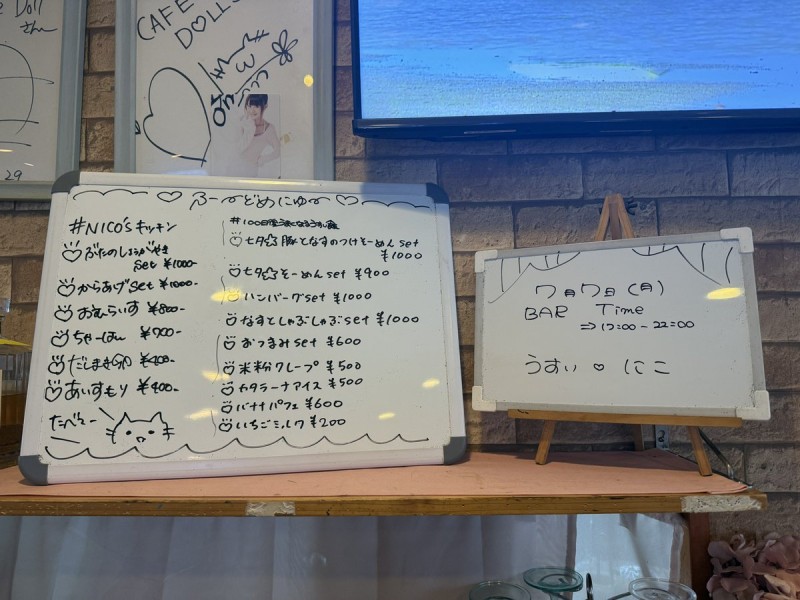 Doll
さん
29
CAFE
DOLL
ふーどめにゅー
#NICO'sキッチン
ぶたのしょうがやき
set ¥1000-
からあげset ¥1000-
おむらいす ¥800-
ちゃーはん ¥700-
だしまき ¥400-
あいすもり ¥400-
たべてー
七夕☆豚となすのつけそーめん set
¥1000
七夕☆そーめん set ¥900
ハンバーグset ¥1000
なすとしゃぶしゃぶset ¥1000
おつまみset ¥600
米粉クレープ ¥500
カタラーナアイス ¥500
バナナパフェ ¥600
いちごミルク ¥200
7月7日(月)
BAR Time
⇒17:00-22:00
うすい ♡ にこ